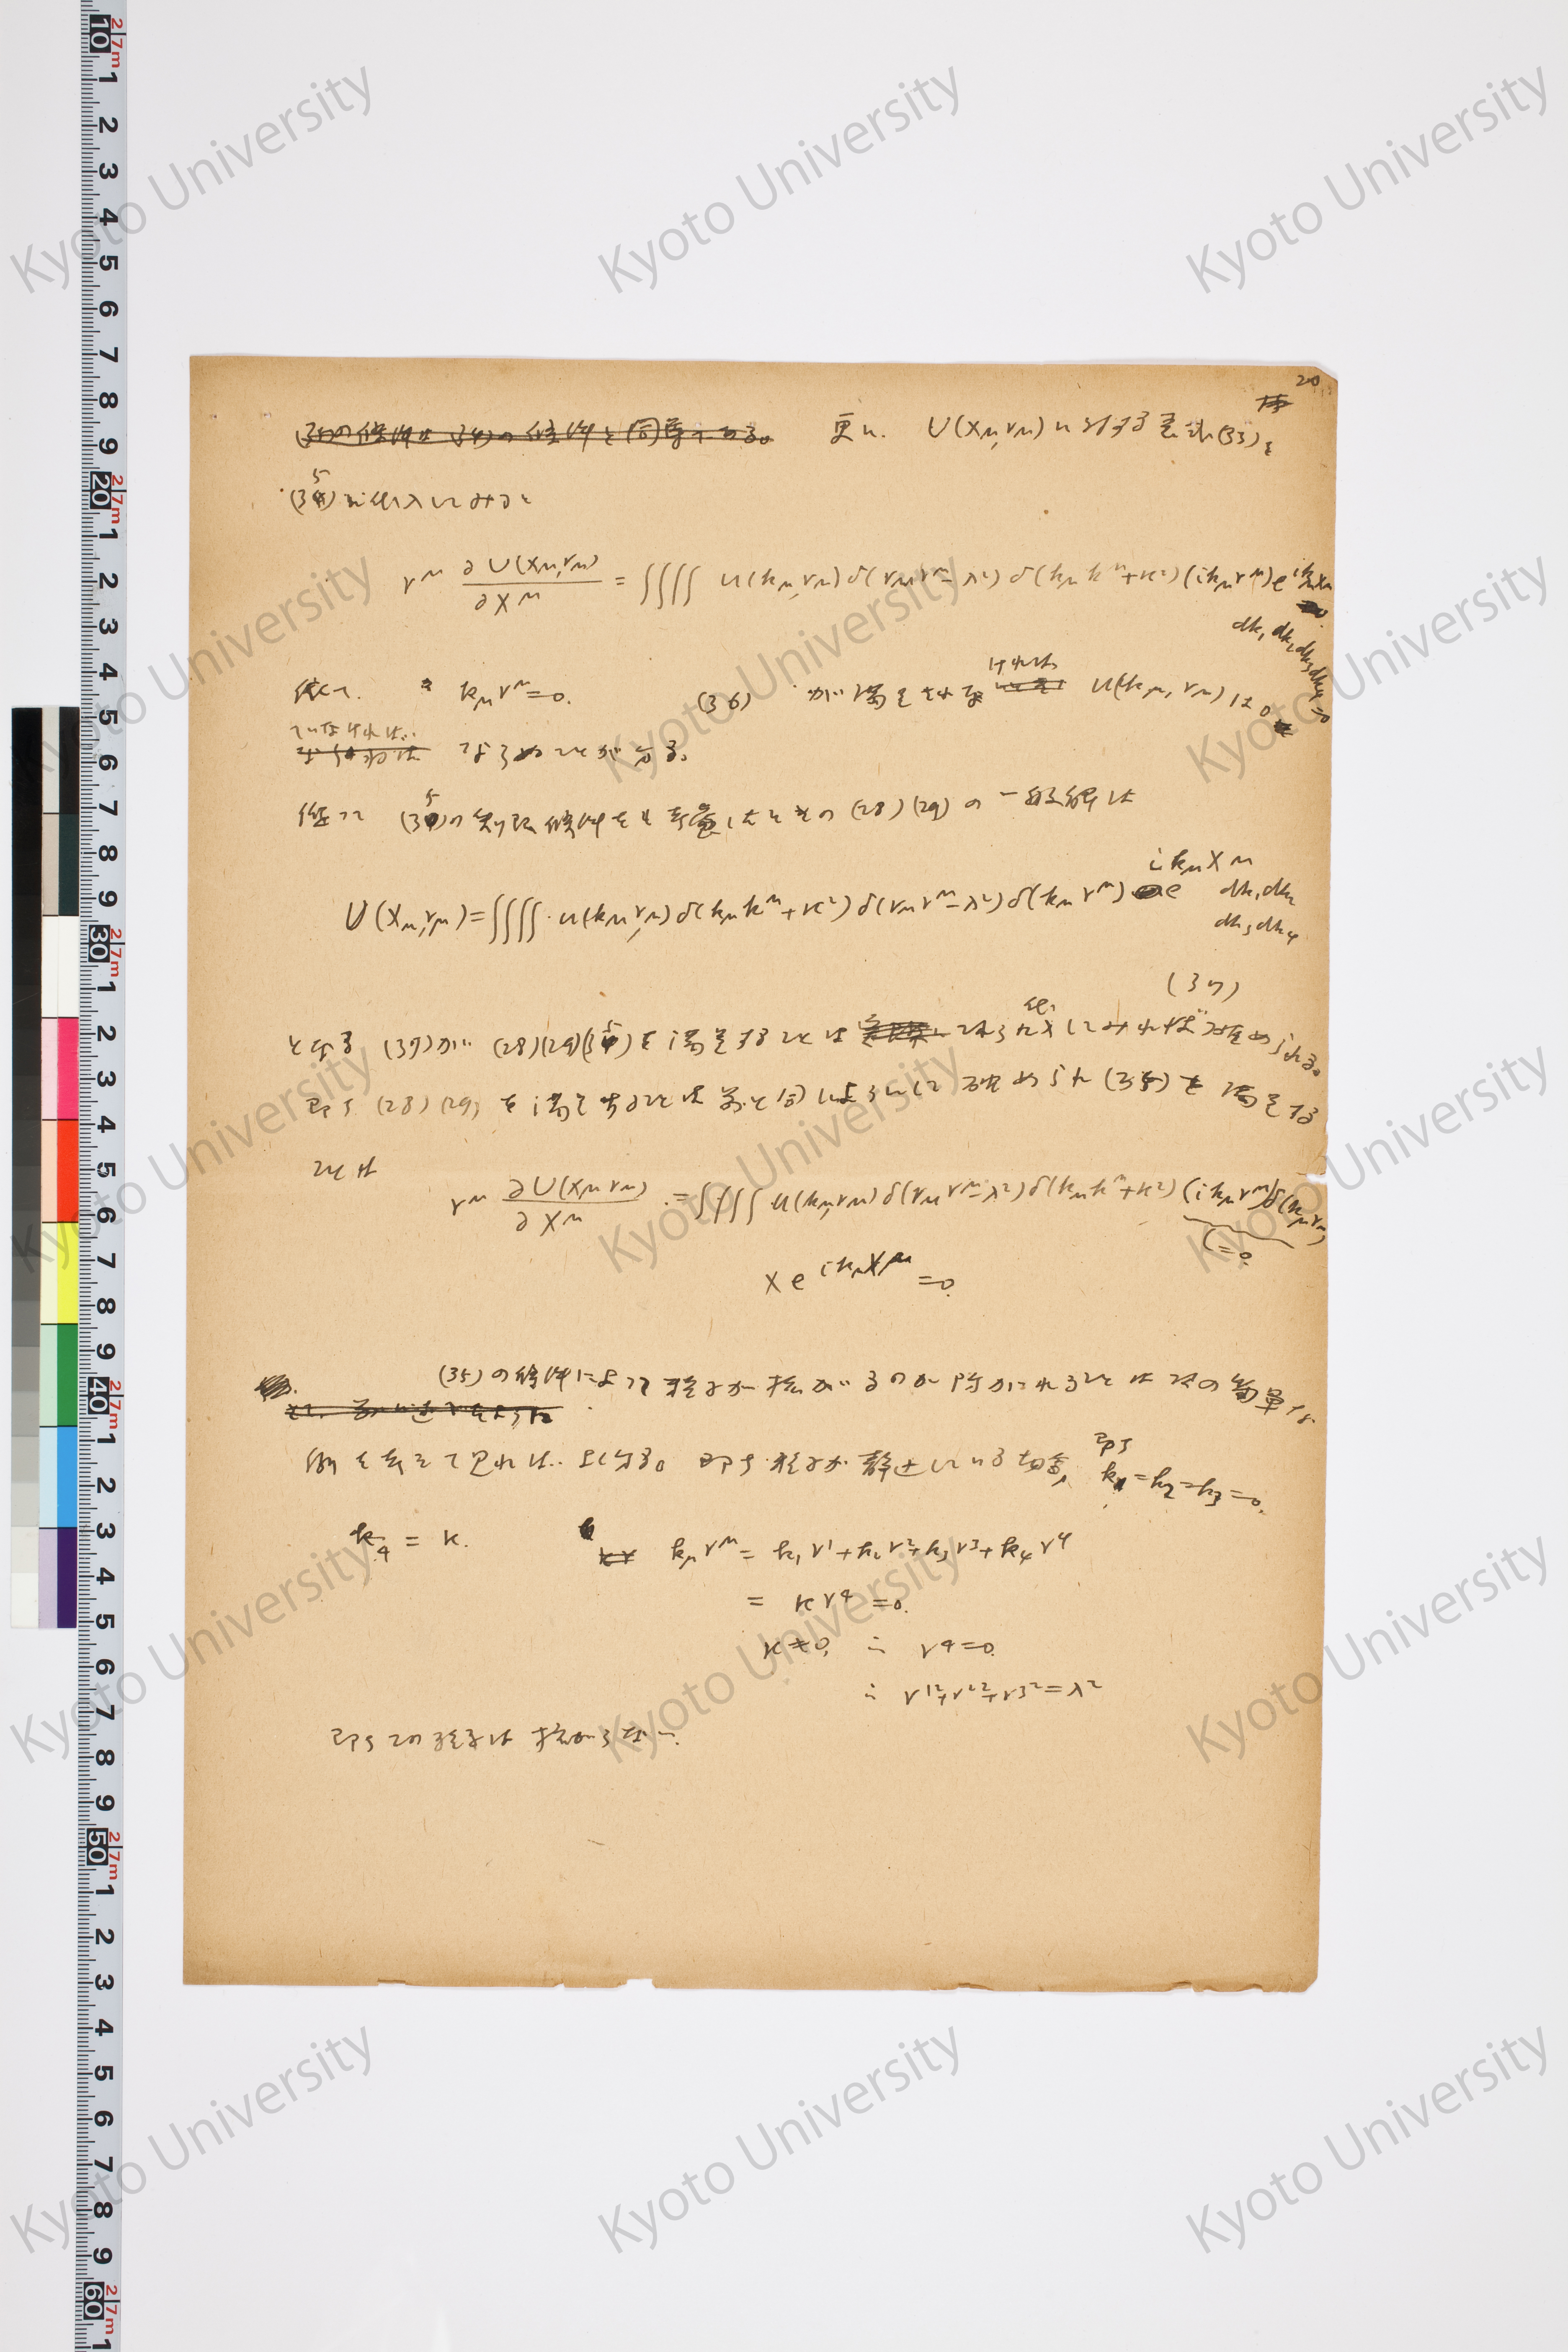 20
更に. U(xμ,rμ)に対する表式(33)を
(35)に代入してみると
r^μ ∂U(xμ,rμ)/∂x^μ = ∫∫∫∫ u(kμ,rμ) δ(rμr^μ−λ²) δ(kμk^μ+κ²)(ikμr^μ)e^{ikμx^μ}
dk₁dk₂dk₃dk₄=0
依て. kμr^μ=0. (36) が満足されなければ u(kμ,rμ)は0
でなければ..
ならぬことが分る。
従って (35)の制限條件をも考慮したときの(28)(29)の一般解は
U(xμ,rμ)=∫∫∫∫ u(kμ,rμ)δ(kμk^μ+κ²)δ(rμr^μ−λ²)δ(kμr^μ)e^{ikμx^μ} dk₁dk₂
dk₃dk₄
(37)
となる (37)が (28)(29)(35)を満足することは これらに代入してみれば確められる。
即ち (28)(29)を満足することは前と同じようにして確められ (35)を満足する
ことは
r^μ ∂U(xμ rμ)/∂x^μ = ∫∫∫∫ u(kμ,rμ)δ(rμr^μ−λ²)δ(kμk^μ+κ²)(ikμr^μ)δ(kμr^μ)
(=0.
×e^{ikμx^μ}=0.
(35)の條件によって粒子が拡がるのが防がれることは次の簡單な
例を考えて見れば..よく分る。即ち粒子が静止している場合, 即ち k₁=k₂=k₃=0.
k₄=κ. kμr^μ=k₁r¹+k₂r²+k₃r³+k₄r⁴
= κr⁴ =0.
κ≠0, ∴ r⁴=0.
∴ r¹²+r²²+r³²=λ²
即ちこの粒子は拡がらない.
Kyoto University